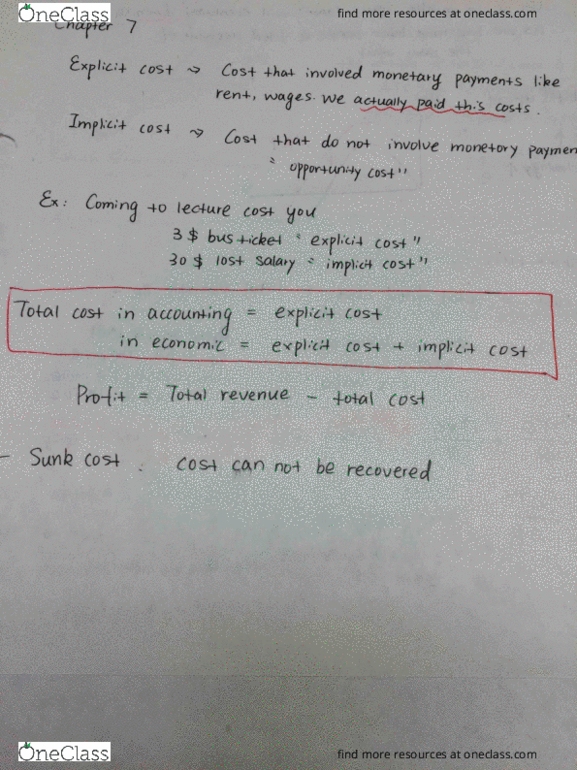 OneClass
find more resources at oneclass.com
Chapter 7
Explicit cost → Cost that involved monetary payments like
rent, wages. we actually paid this costs.
Implicit cost → Cost that do not involve monetory paymen
"opportunity cost"
Ex: Coming to lecture cost you
3 $ bus ticket "explicit cost"
30 $ lost salary "implicit cost"
Total cost in accounting = explicit cost
in economic = explicit cost + implicit cost
Profit = Total revenue - total cost
- Sunk cost : cost can not be recovered
OneClass
find more resources at oneclass.com